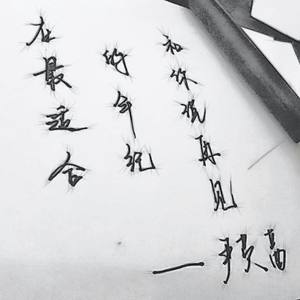 在最适合
的年纪
和你说再见
—预高